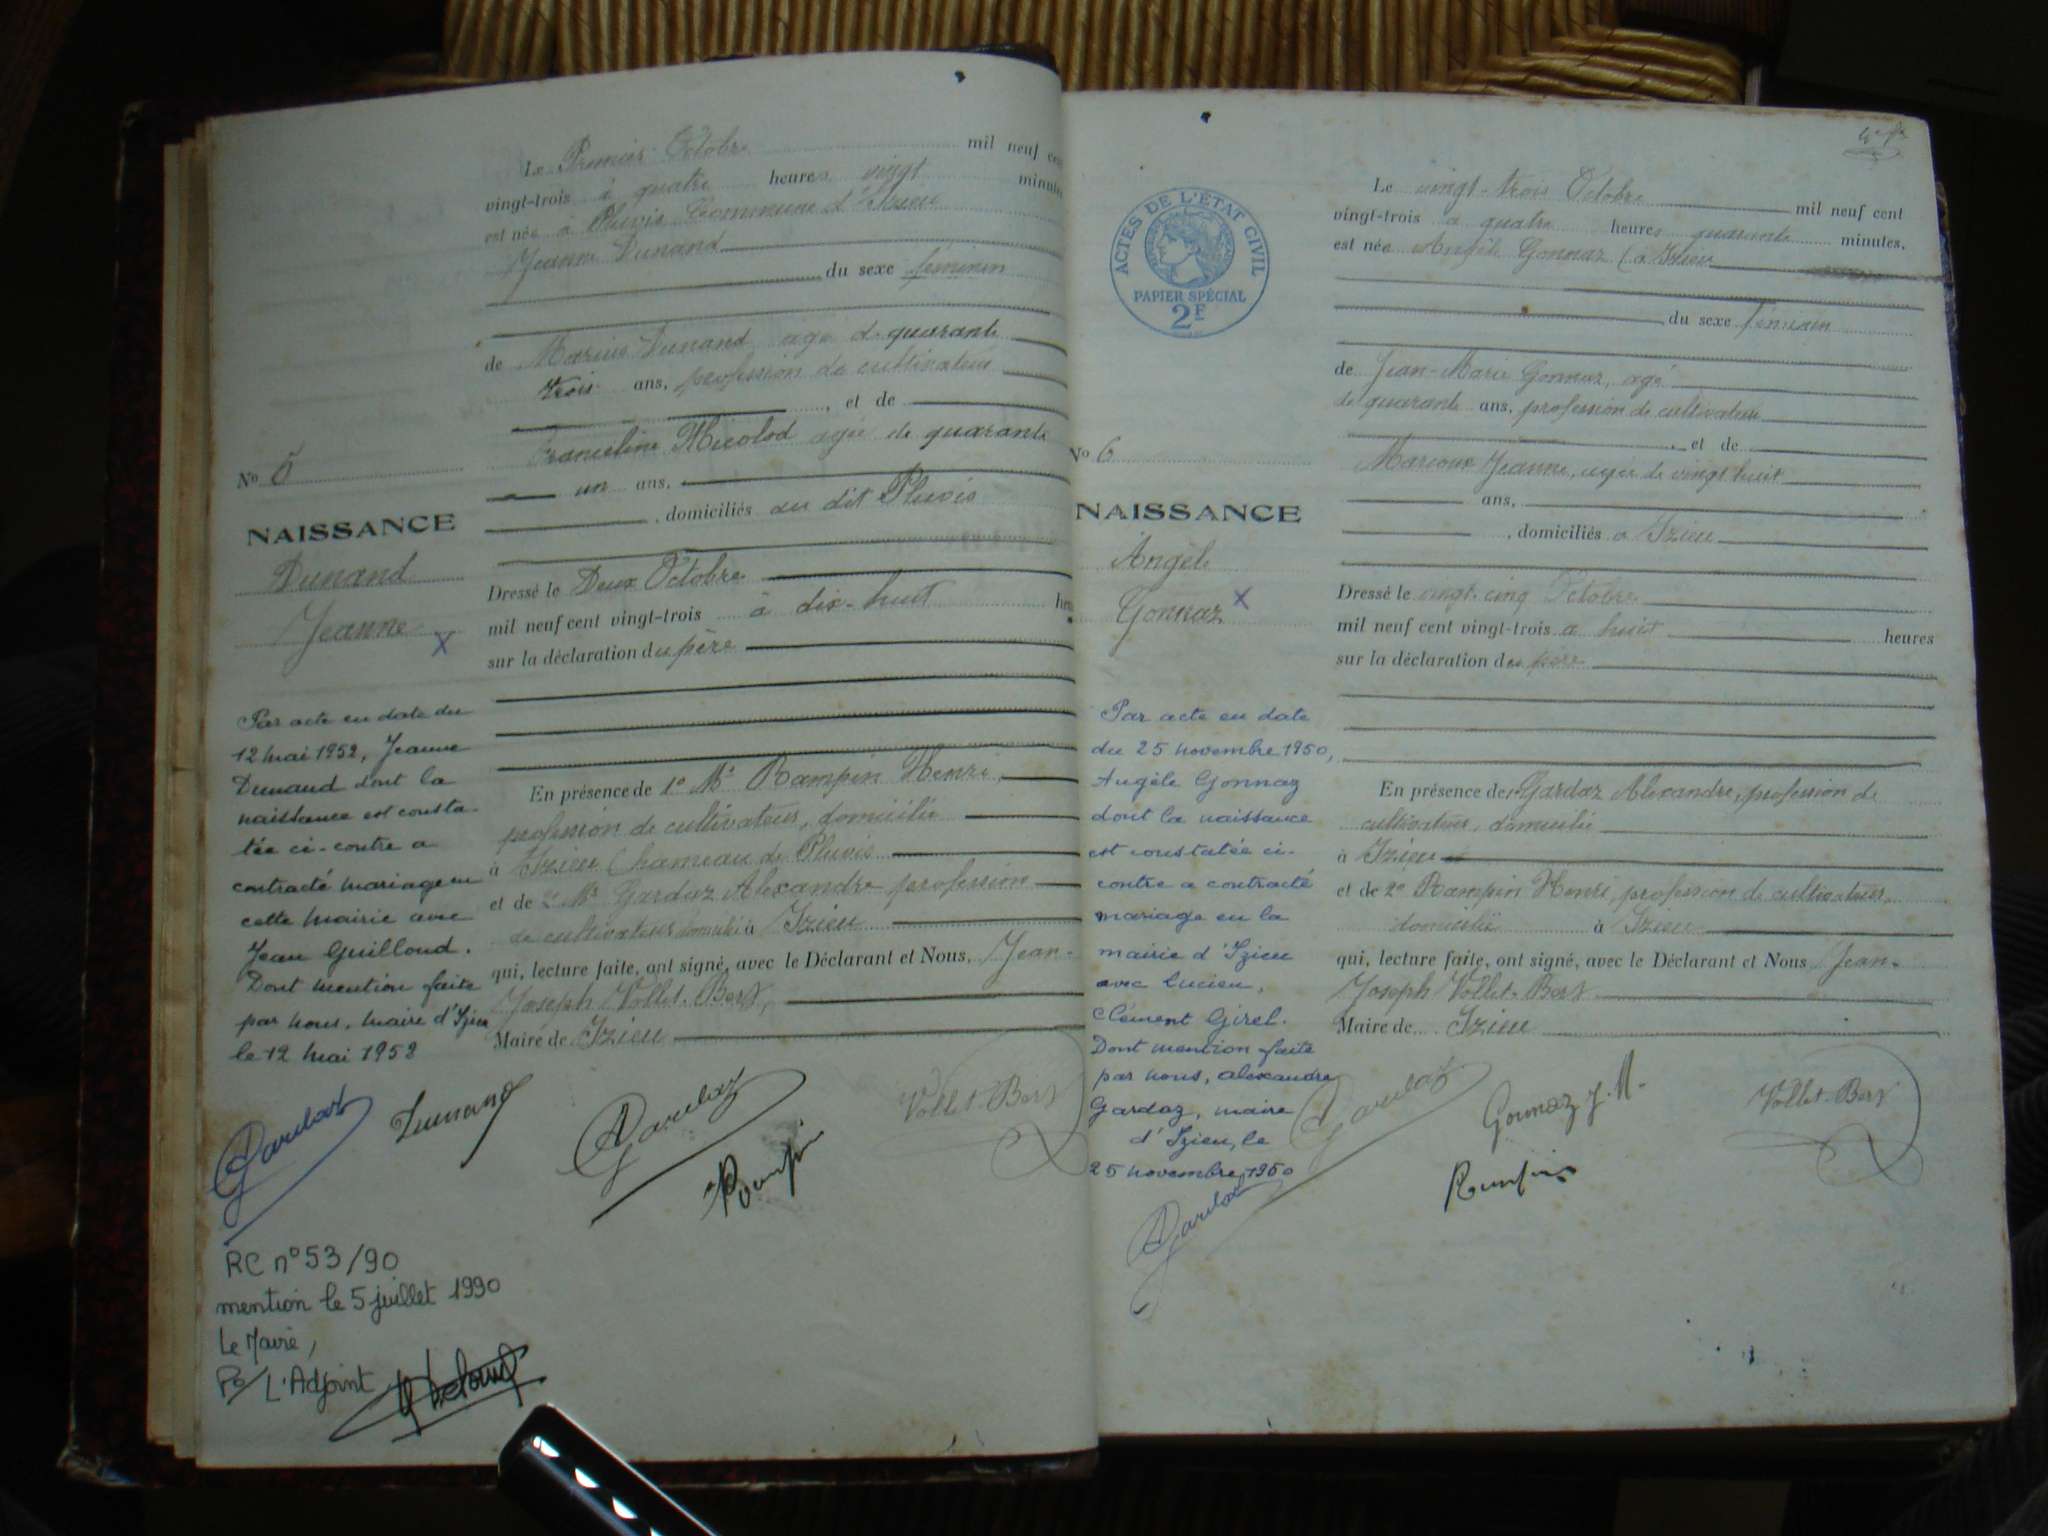 Le Premier Octobre mil neuf cen
vingt-trois à quatre heures vingt minutes
est née à Pluvis Commune d'Izieu
Jeanne Dunand
du sexe féminin
de Marius Dunand agé de quarante
trois ans, profession de cultivateur
, et de
Franceline Micolod agée de quarante
un ans,
, domiciliés au dit Pluvis
No 5
NAISSANCE
Dunand
Jeanne X
Dressé le Deux Octobre
mil neuf cent vingt-trois à dix-huit
sur la déclaration du père
En présence de 1o Mr Rampin Henri,
profession de cultivateur, domicilié
à Izieu (hameau de Pluvis
et de 2o Mr Gardaz Alexandre profession
de cultivateur domicilié à Izieu
qui, lecture faite, ont signé, avec le Déclarant et Nous, Jean-
Joseph Vollet-Bert,
Maire de Izieu
Par acte en date du
12 mai 1952, Jeanne
Dunand dont la
naissance est consta-
tée ci-contre a
contracté mariage en
cette mairie avec
Jean Guilloud.
Dont mention faite
par nous, maire d'Izieu
le 12 mai 1952
Gardaz Dunand Gardaz Rampin Vollet-Bert
RC n°53/90
mention le 5 juillet 1990
Le Maire,
Po/ L'Adjoint
ACTES DE L'ÉTAT CIVIL
PAPIER SPÉCIAL
2F
Le vingt-trois Octobre mil neuf cent
vingt-trois à quatre heures quarante minutes.
est née Angèle Gonnaz (à Izieu
du sexe féminin
de Jean-Marie Gonnaz, agé
de quarante ans, profession de cultivateur
, et de
Marioux Jeanne, agée de vingt huit
ans,
, domiciliés à Izieu
No 6
NAISSANCE
Angèle
Gonnaz X
Dressé le vingt-cinq Octobre
mil neuf cent vingt-trois à huit heures
sur la déclaration du père
En présence de Gardaz Alexandre, profession de
cultivateur, domicilié
à Izieu
et de 2o Rampin Henri, profession de cultivateur,
domicilié à Izieu
qui, lecture faite, ont signé, avec le Déclarant et Nous Jean-
Joseph Vollet-Bert
Maire de Izieu
Par acte en date
du 25 novembre 1950,
Angèle Gonnaz
dont la naissance
est constatée ci-
contre a contracté
mariage en la
mairie d'Izieu
avec Lucien,
Clément Girel.
Dont mention faite
par nous, Alexandre
Gardaz, maire
d'Izieu, le
25 novembre 1950
Gardaz Gardaz Gonnaz J. M. Rampin Vollet-Bert